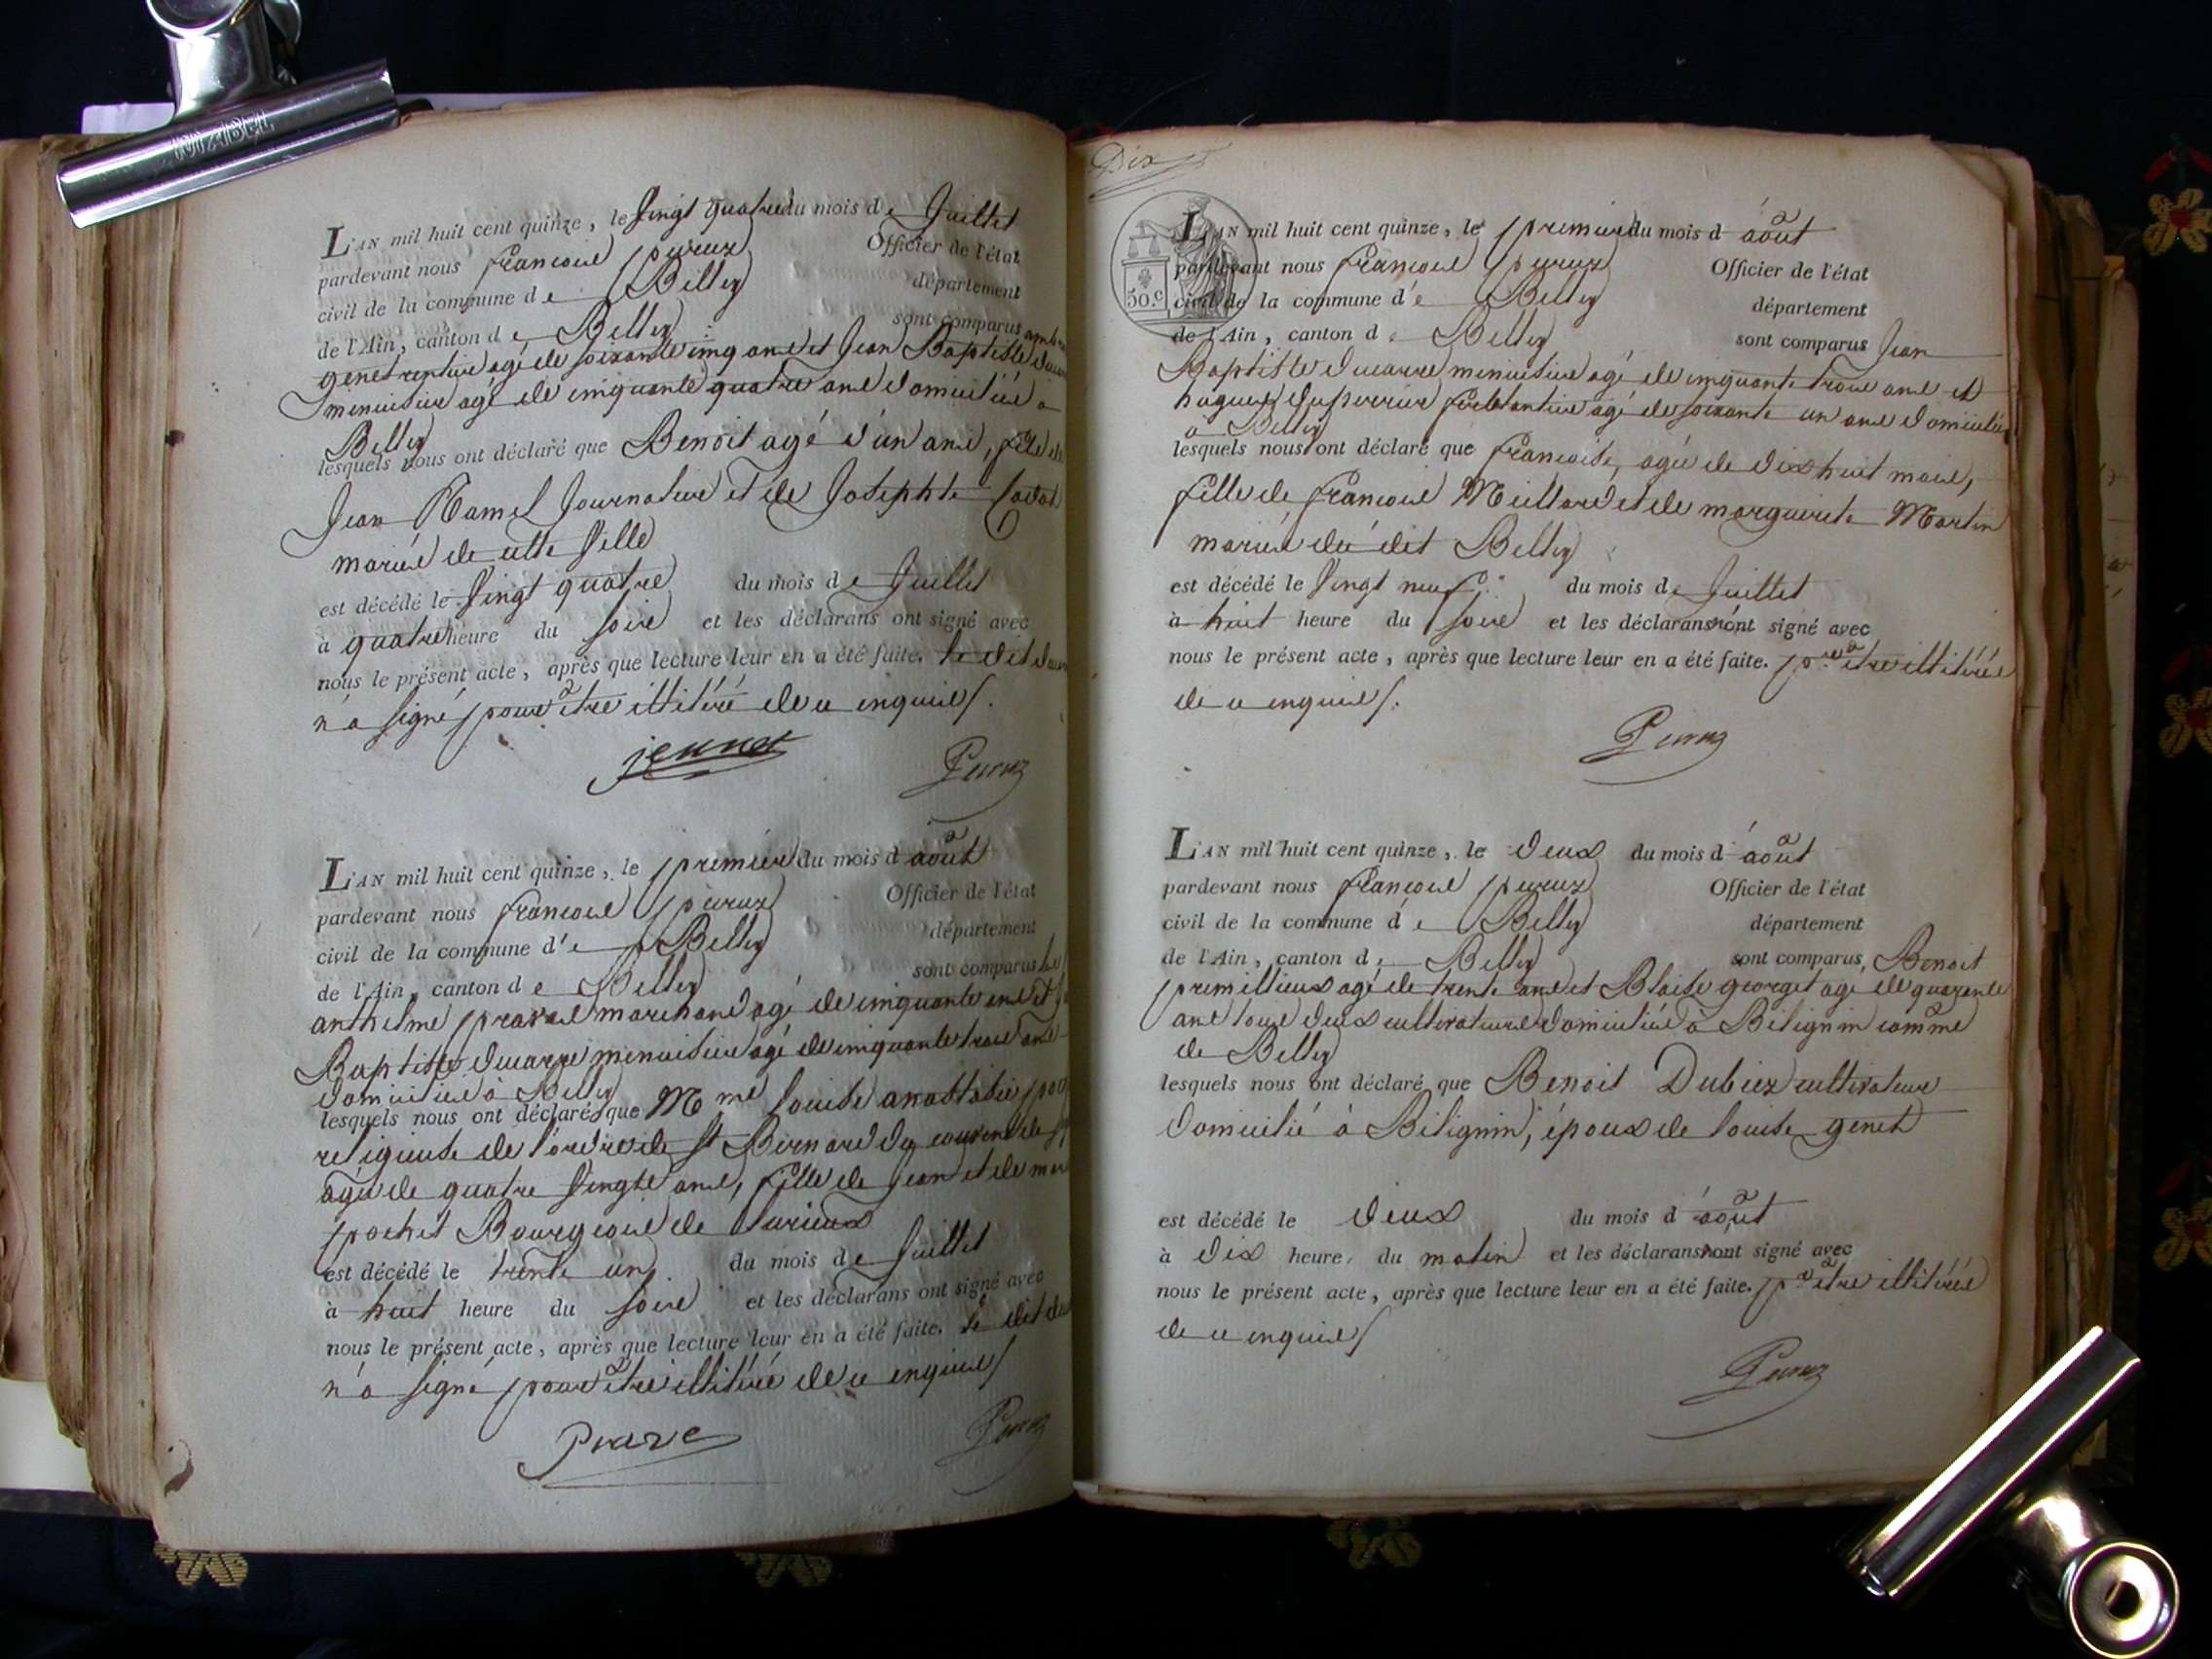 L'AN mil huit cent quinze, le vingt quatre du mois de Juillet
pardevant nous françois peruz Officier de l'état
civil de la commune de Belley département
de l'Ain, canton de Belley sont comparus
genet rentier agé de soixante cinq ans et Jean Baptiste
menuisier agé de cinquante quatre ans domiciliés a
Belley
lesquels nous ont déclaré que Benoit agé d'un ans, fils de
Jean Hamel Journalier et de Josephte
mariés de cette ville
est décédé le vingt quatre du mois de Juillet
à quatre heure du soir et les déclarans ont signé avec
nous le présent acte, après que lecture leur en a été faite. le dit
n'a signé pour être illitéré de ce enquis/.
jennet
Peruz
L'AN mil huit cent quinze, le premier du mois d'août
pardevant nous françois peruz Officier de l'état
civil de la commune d'e Belley département
de l'Ain, canton de Belley sont comparus
anthelme pravaz marchand agé de cinquante ans et
Baptiste ducarre menuisier agé de cinquante trois ans
domiciliés à Belley
lesquels nous ont déclaré que Mme louise anasthasie
religieuse de l'ordre de St Bernard du couvent de
agée de quatre vingts ans, fille de Jean et de
pochet Bourgeois de
est décédé le trente un du mois de Juillet
à huit heure du soir et les déclarans ont signé avec
nous le présent acte, après que lecture leur en a été faite. le dit
n'a signé pour être illitéré de ce enquis/
Praze
Peruz
Dix
50.c
L'AN mil huit cent quinze, le premier du mois d'août
pardevant nous françois peruz Officier de l'état
civil de la commune d'e Belley département
de l'Ain, canton de Belley sont comparus Jean
Baptiste ducarre menuisier agé de cinquante trois ans et
hugues duperrier agé de soixante un ans domiciliés
a Belley
lesquels nous ont déclaré que françoise, agée de dix huit mois,
fille de françois Meillard et de marguerite Martin
mariés du dit Belley
est décédé le vingt neuf du mois de Juillet
à huit heure du soir et les déclarans n'ont signé avec
nous le présent acte, après que lecture leur en a été faite. pr être illitérés
de ce enquis/.
Peruz
L'AN mil huit cent quinze, le deux du mois d'août
pardevant nous françois peruz Officier de l'état
civil de la commune d'e Belley département
de l'Ain, canton de Belley sont comparus, Benoit
premillieux agé de trente ans et Blaise georget agé de quarante
ans tous deux cultivateurs domiciliés à Bilignin comme
de Belley
lesquels nous ont déclaré que Benoit Dubiez cultivateur
domicilié à Bilignin, époux de louise genet
est décédé le deux du mois d'août
à dix heure, du matin et les déclarans n'ont signé avec
nous le présent acte, après que lecture leur en a été faite. pr être illitérés
de ce enquis/
Peruz